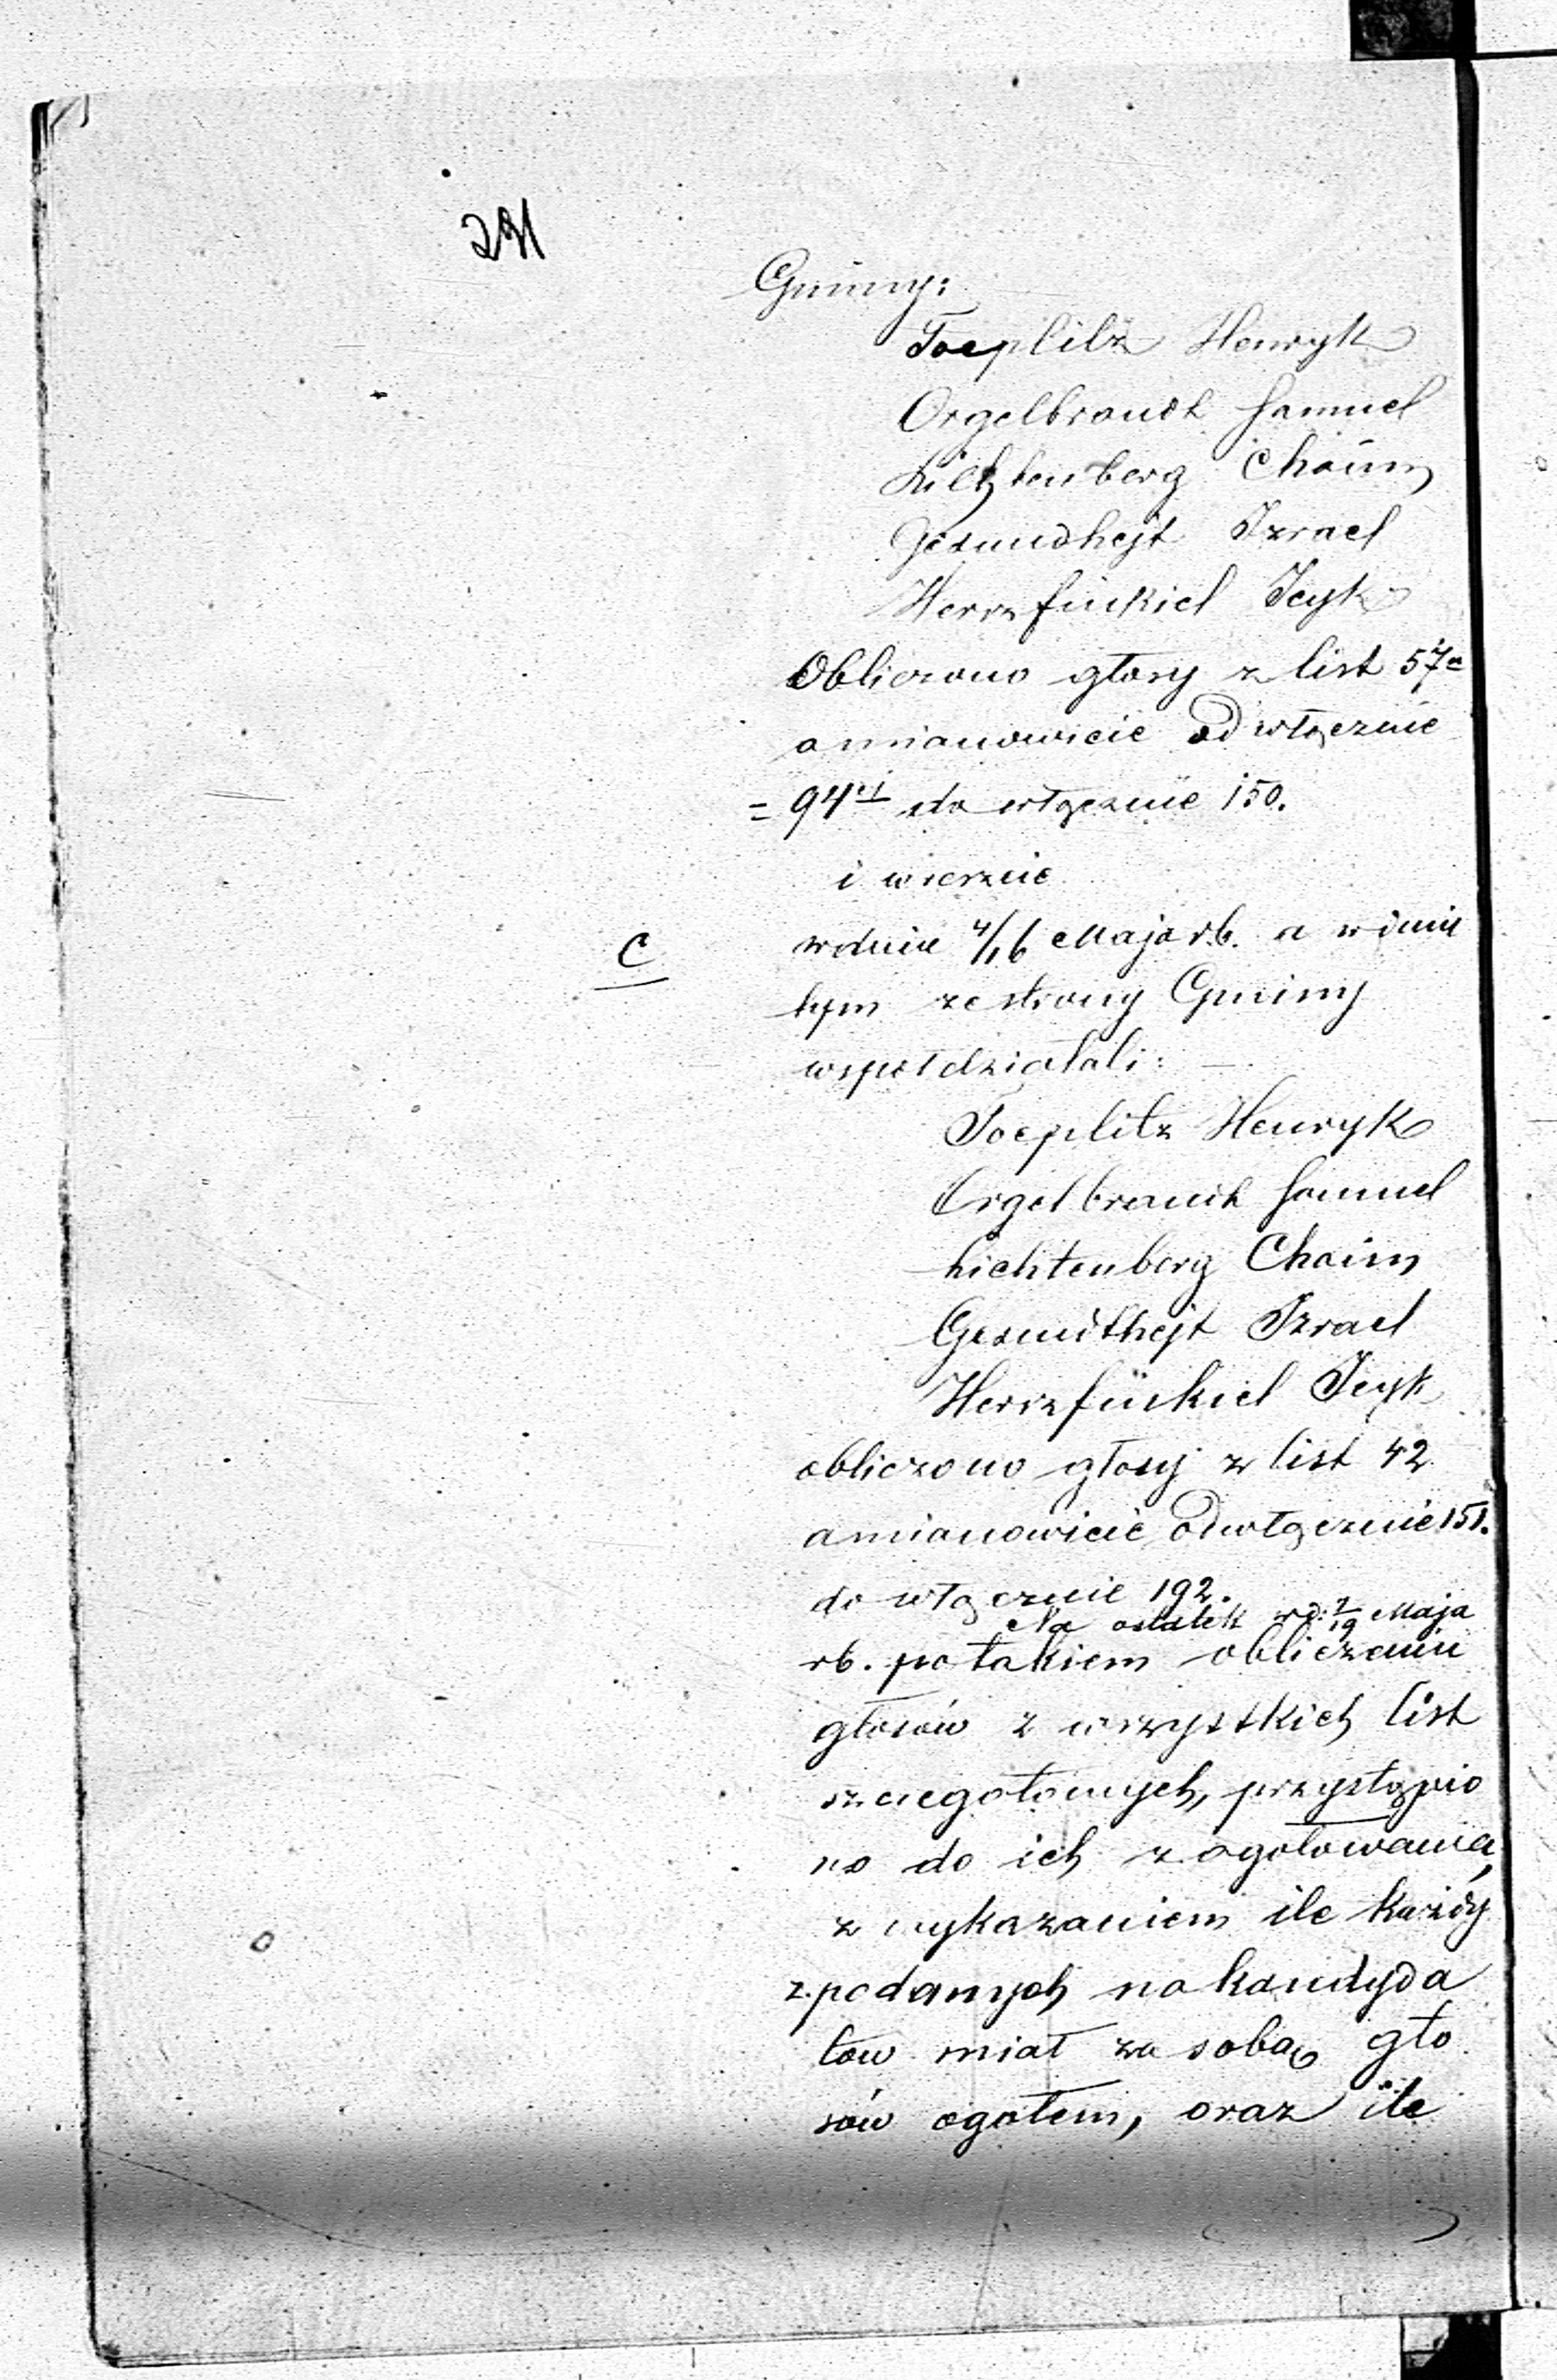 291
Gminy:
Toeplitz Henryk
Orgelbrandt Samuel
Lichtenberg Chaim
Gesundhejt Izrael
Herrzfinkiel Icyk
Obliczono głosy z list 57
a mianowicie od włącznie
= 94 do włącznie 150.
i wreszcie
C
w dniu 4/16 Maja rb. a w dniu
tym ze strony Gminy
współdziałali:
Toeplitz Henryk
Orgelbrandt Samuel
Lichtenberg Chaim
Gesundhejt Izrael
Herrzfinkiel Icyk
obliczono głosy z list 42
a mianowicie od włącznie 151.
do włącznie 192.
Na ostatek wd: 7/19 Maja
rb. po takiem obliczeniu
głosów z wszystkich list
szczegołowych, przystąpio
no do ich zogołowania,
z wykazaniem ile każdy
z podanych na kandyda
tow miał za sobą gło
sów ogołem, oraz ile